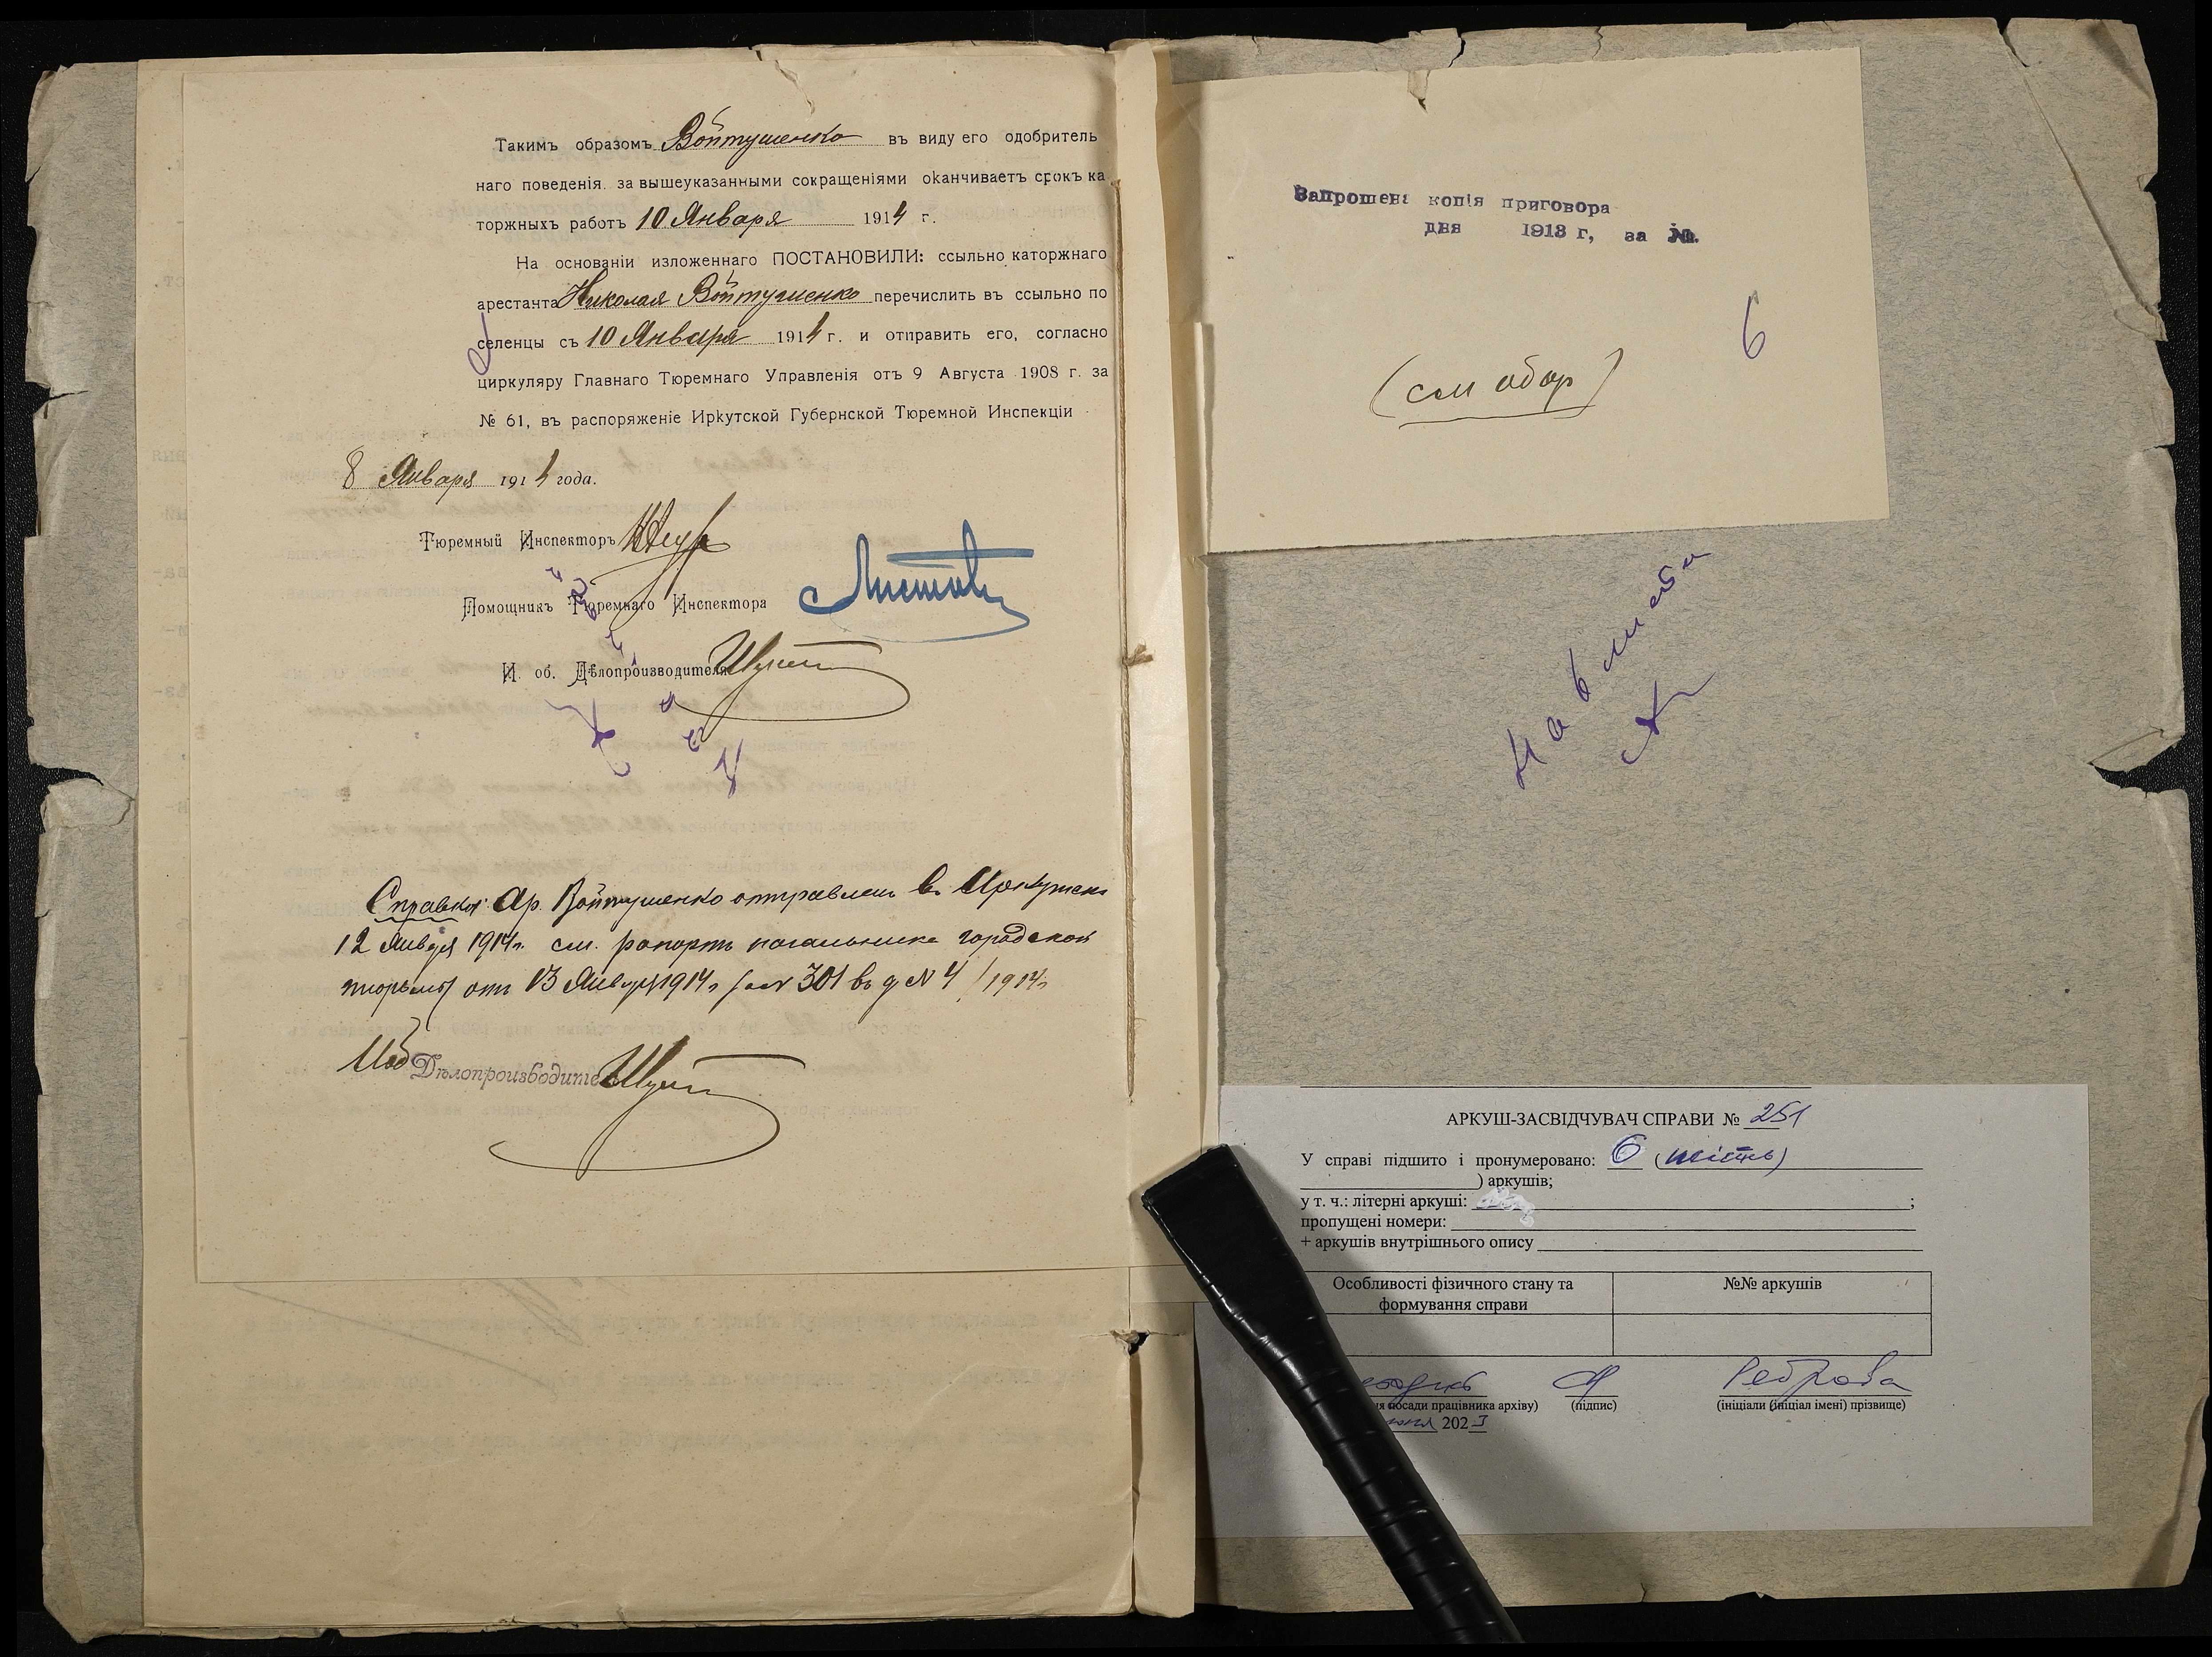 Такимъ образомъ Войтушенко въ виду его одобритель
наго поведенія. за вышеуказанными сокращеніями оканчиваетъ срокъ ка
торжныхъ работъ 10 Января 1914 г.
На основаніи изложеннаго ПОСТАНОВИЛИ: ссыльно каторжнаго
арестанта Николая Войтушенко перечислить въ ссыльно по
селенцы съ 10 Января 1914 г. и отправить его, согласно
циркуляру Главнаго Тюремнаго Управленія отъ 9 Августа 1908 г. за
№ 61, въ распоряженіе Иркутской Губернской Тюремной Инспекціи
8 Января 1914 года.
Тюремный Инспекторъ
Помощникъ Тюремнаго Инспектора
И. об. Дѣлопроизводителя
Справка: Ар. Войтушенко отправленъ въ Иркутскъ
12 Января 1914г. см. рапортъ начальника городской
тюрьмы отъ 13 Января 1914г за № 301 въ д № 4/1914г
Иоб Дѣлопроизводите
Запрошена копія приговора
дня 1913 г, за №.
6
(см обор)
На 6 листа
АРКУШ-ЗАСВІДЧУВАЧ СПРАВИ № 251
У справі підшито і пронумеровано: 6 (шість)
) аркушів;
у т. ч.: літерні аркуші: ;
пропущені номери:
+ аркушів внутрішнього опису
Особливості фізичного стану та формування справи
№№ аркушів
Реброва
ня посади працівника архіву) (підпис) (ініціали (ініціал імені) прізвище)
202